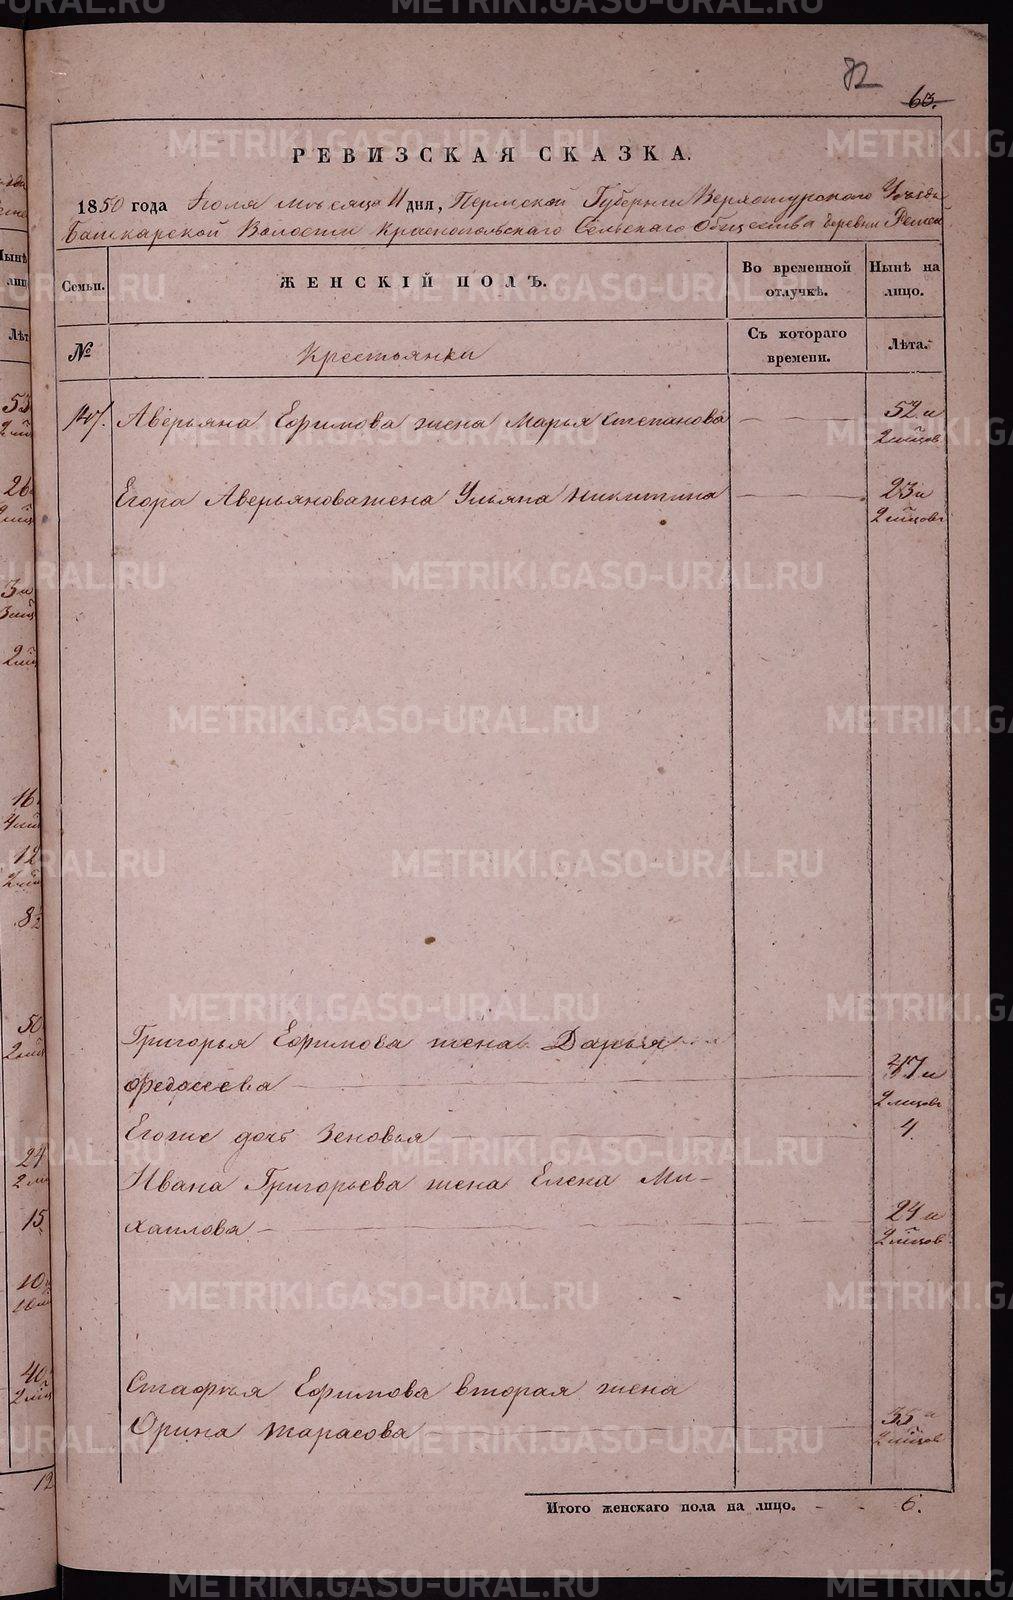 82
63.
РЕВИЗСКАЯ СКАЗКА.
1850 года Іюля мѣсяца 11 дня, Пермской Губерніи Верхотурскаго Уѣзда
Башкарской Волости Краснопольскаго Сельскаго Общества деревни
Семьи. ЖЕНСКІЙ ПОЛЪ. Во временной отлучкѣ. Нынѣ на лицо.
№ Крестьянки Съ котораго времени. Лѣта.
147. Аверьяна Ефимова жена Марья Степанова 52 и
2 мѣсяцов
Егора Аверьянова жена Ульяна Никитина 23 и
2 мѣсцовъ
Григорья Ефимова жена Дарья
Федосеева 47 и
2 мсцовъ
Егоже дочь Зеновья 4.
Ивана Григорьева жена Елена Ми-
хаилова 24 и
2 мѣсцов
Стафѣя Ефимова вторая жена
Орина Тарасова 35 и
2 мѣсцов
Итого женскаго пола на лицо. 6.
METRIKI.GASO-URAL.RU